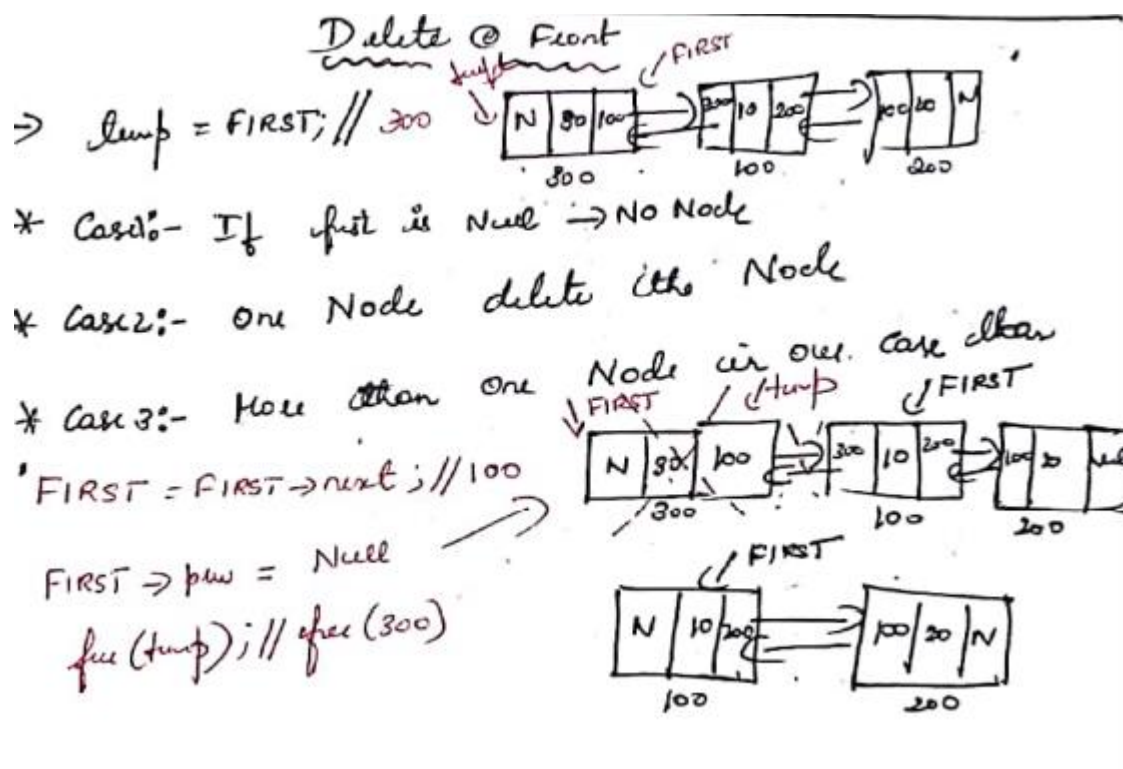 Delete @ Front
temp FIRST
→ temp = FIRST; // 300
N 30 100 300 10 200 100 20 N
300 100 200
* Case1:- If first is Null → No Node
* Case2:- One Node delete the Node
* Case3:- More than one Node in our case than
FIRST temp FIRST
N 30 100 300 10 200 100 20 Null
300 100 200
FIRST = FIRST → next; // 100
FIRST → prev = Null
free (temp); // free (300)
FIRST
N 10 200 100 20 N
100 200